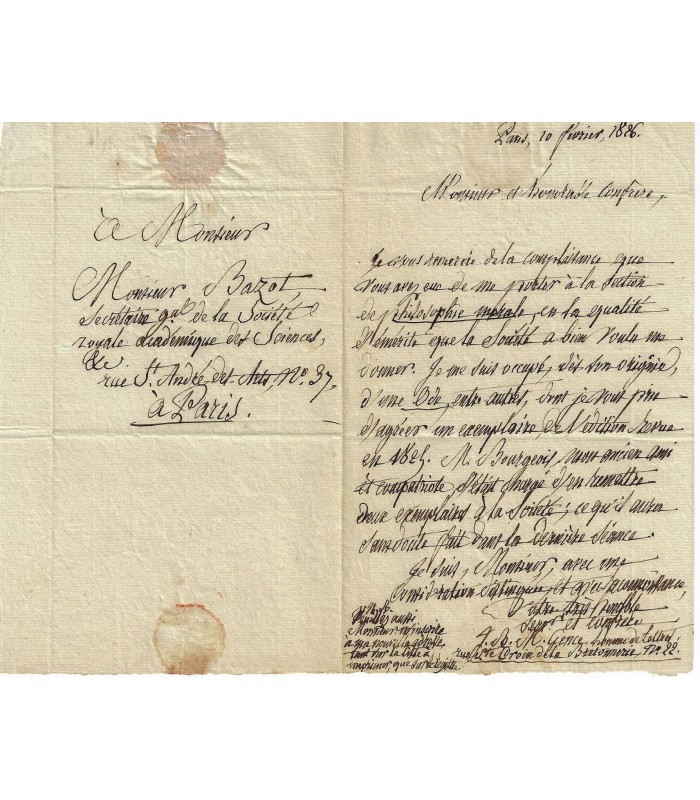 à Monsieur
Monsieur Bazot,
Secrétaire gal de la Société
royale académique des Sciences,
&c.
rue St André des Arts, No. 37,
à Paris.
Paris, 10 février, 1826.
Monsieur et honorable confrère,
Je vous remercie de la complaisance que
vous avez eue de me porter à la section
de philosophie morale, en la qualité
d'émérite que la Société a bien voulu me
donner. Je me suis occupé, dès son origine,
d'une Ode, entre autres, dont je vous prie
d'agréer un exemplaire, de l'édition revue
en 1825. M. Bourgeois, mon ancien ami
et compatriote, s'était chargé d'en remettre
deux exemplaires à la Société; ce qu'il aura
sans doute fait dans la dernière séance.
Je suis, Monsieur, avec une
considération distinguée, et reconnaissance,
Votre très humble
serv. et confrère
J. B. M. Gence, homme de lettres,
rue Ste Croix de la Bretonnerie, No. 22.
P.S.
Veuillez aussi,
Monsieur, m'inscrire
à ma nouvelle adresse,
tant sur la liste à
imprimer, que sur le registre.